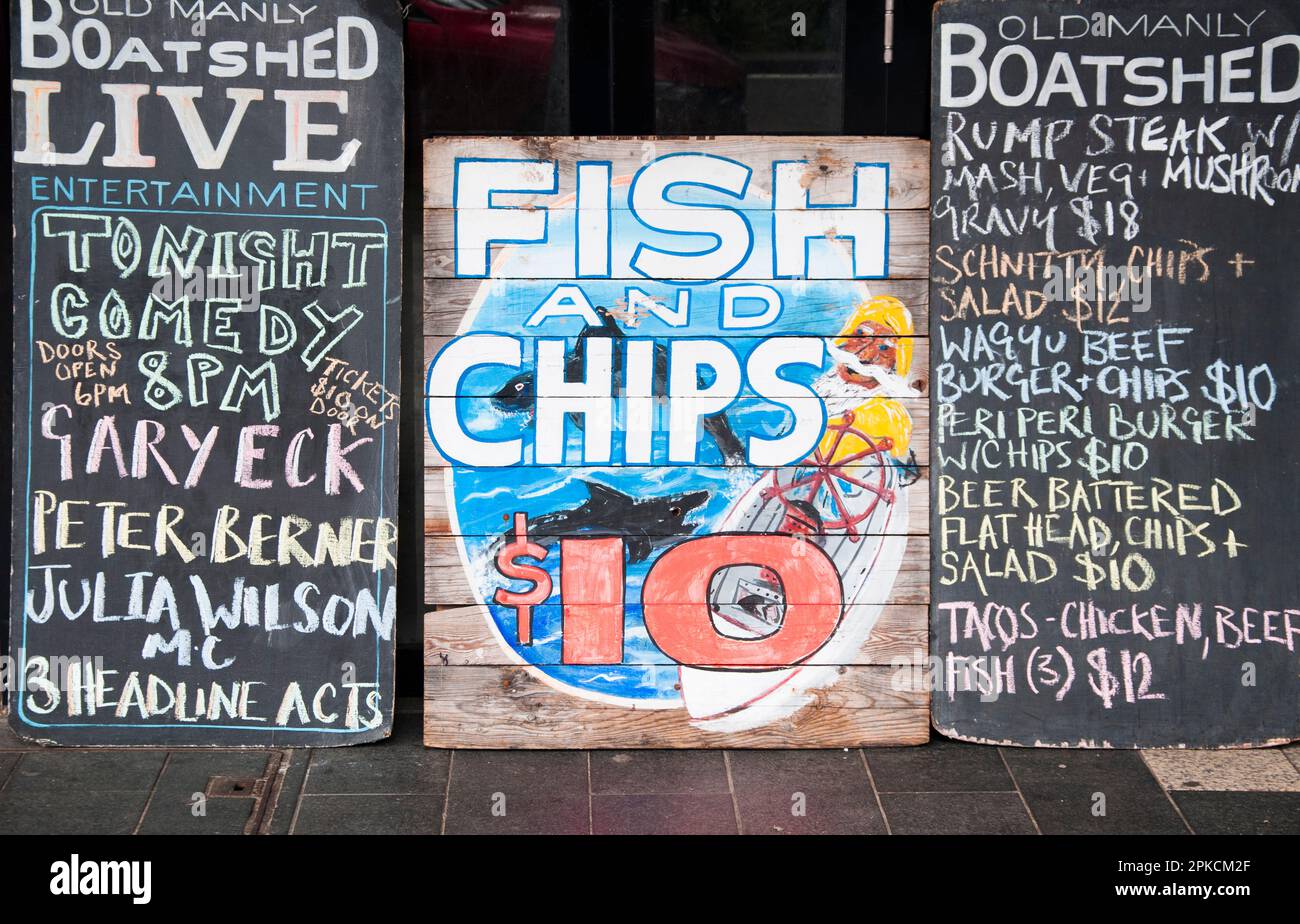 OLD MANLY
BOATSHED
LIVE
ENTERTAINMENT
TONIGHT
COMEDY
8PM
DOORS
OPEN
6PM
TICKETS
$10 ON
DOOR
GARY ECK
PETER BERNER
JULIA WILSON
M.C
3 HEADLINE ACTS
FISH
AND
CHIPS
$10
OLD MANLY
BOATSHED
RUMP STEAK W/
MASH, VEG + MUSHROOM
GRAVY $18
SCHNITTY, CHIPS +
SALAD $12
WAGGYU BEEF
BURGER + CHIPS $10
PERI PERI BURGER
W/CHIPS $10
BEER BATTERED
FLATHEAD, CHIPS +
SALAD $10
TACOS - CHICKEN, BEEF
FISH (3) $12
alamy
alamy
Image ID: 2PKCM2F
www.alamy.com